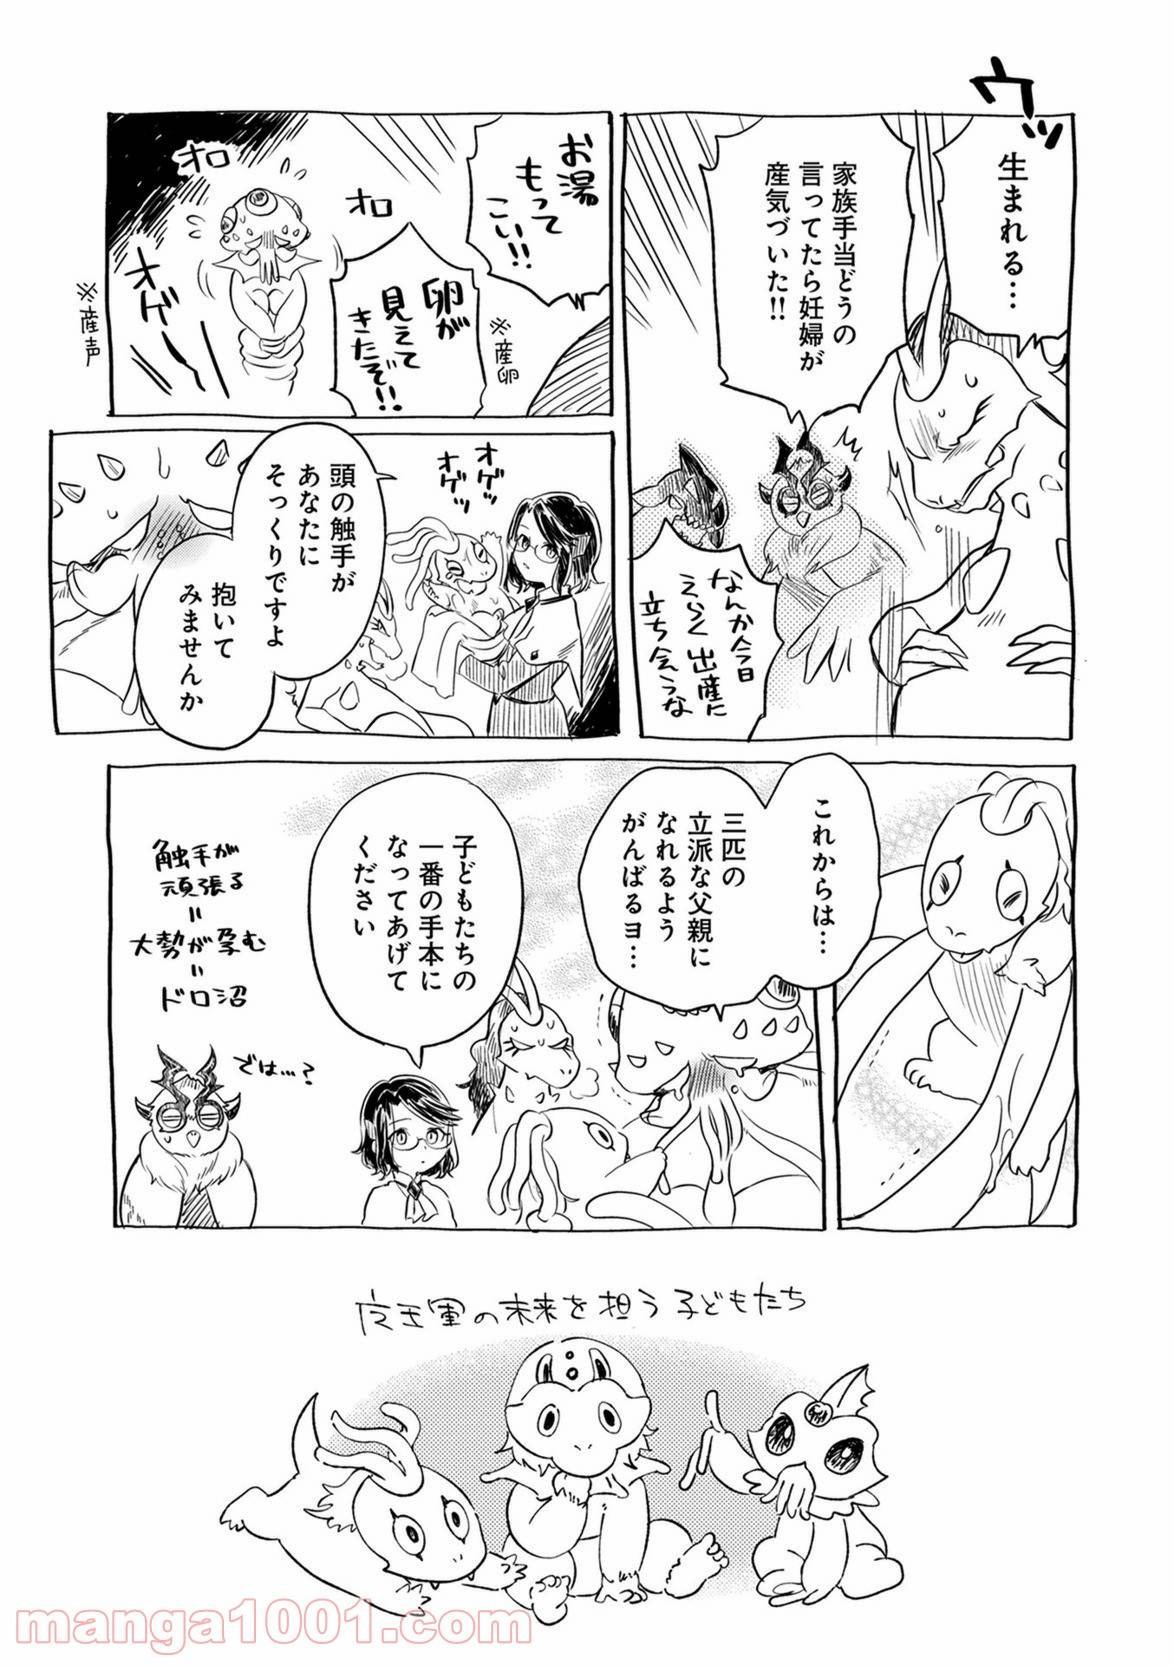 ウッ
生まれる…
家族手当どうの
言ってたら妊婦が
産気づいた!!
なんか今日
えらく出産に
立ち会うな
お湯
もって
こい!!
※産卵
卵が
見えて
きたぞ!!
オロ
オロ
オゲーッ
※産声
オゲッ
オゲッ
頭の触手が
あなたに
そっくりですよ
抱いて
みませんか
これからは…
三匹の
立派な父親に
なれるよう
がんばるヨ…
子どもたちの
一番の手本に
なってあげて
ください
触手が
頑張る
=
大勢が孕む
=
ドロ沼
では…?
魔王軍の未来を担う子どもたち
manga1001.com